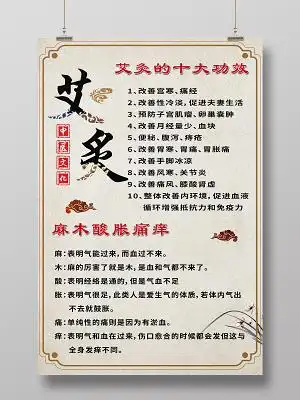 艾灸的十大功效
艾灸
中医文化
1、改善宫寒、痛经
2、改善性冷淡,促进夫妻生活
3、预防子宫肌瘤、卵巢囊肿
4、改善月经量少、血块
5、便秘、腹泻、痔疮
6、改善胃寒、胃痛、胃胀痛
7、改善手脚冰凉
8、改善风寒、关节炎
9、改善痛风、膝酸肾虚
10、整体改善内环境,促进血液
循环增强抵抗力和免疫力
麻木酸胀痛痒
麻:表明气能过来,而血过不来。
木:麻的厉害了就是木,是血和气都不来了。
酸:表明经络是通的,但是气血不足
胀:表明气很足,此类人是爱生气的体质,若体内气出
不去就鼓胀。
痛:单纯性的痛则是因为有淤血。
痒:表明气和血在过来,伤口愈合的时候都会发但这与
全身发痒不同。